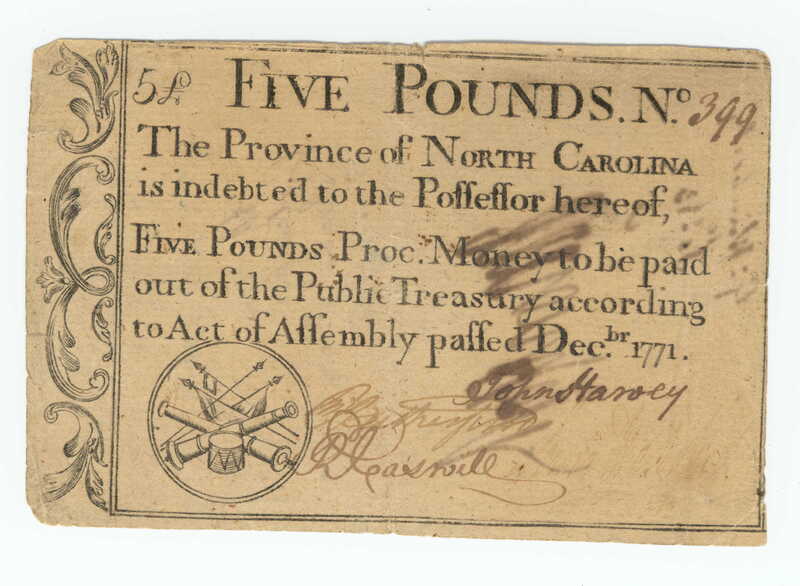 5£ FIVE POUNDS. No. 399
The Province of NORTH CAROLINA
is indebted to the Poſſeſſor hereof,
FIVE POUNDS Proc. Money to be paid
out of the Public Treasury according
to Act of Aſſembly paſſed Dec.br 1771.
John Harvey
R Caswell